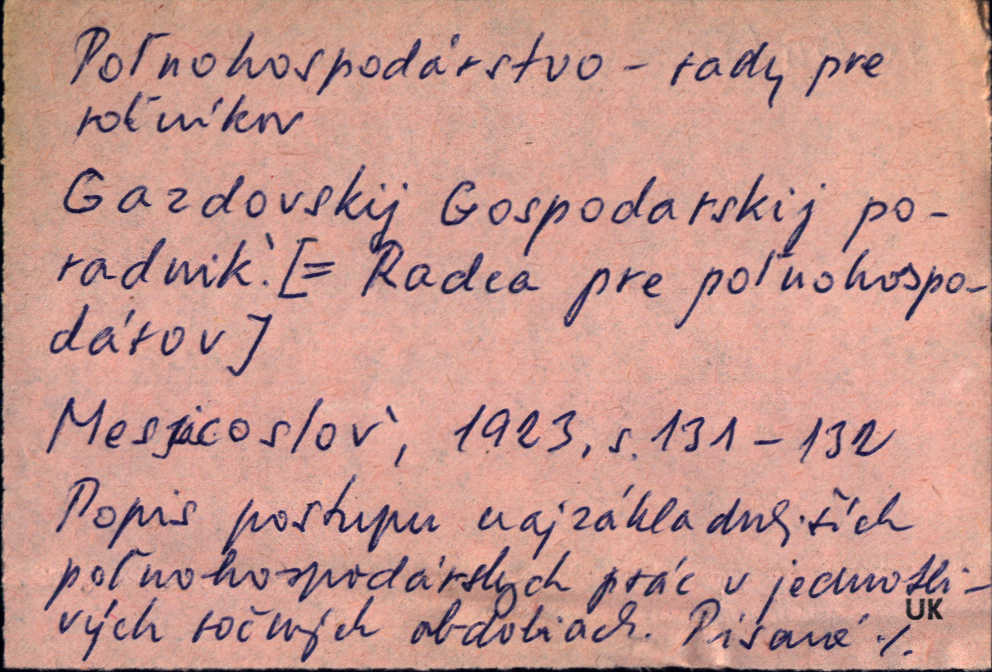 Poľnohospodárstvo - rady pre
roľníkov
Gazdovskij Gospodarskij po-
radnik`. [= Radca pre poľnohospo-
dárov]
Mesjacoslov`, 1923, s. 131 - 132
Popis postupu najzákladnejších
poľnohospodárskych prác v jednotli-
vých ročných obdobiach. Písané ·/.
UK